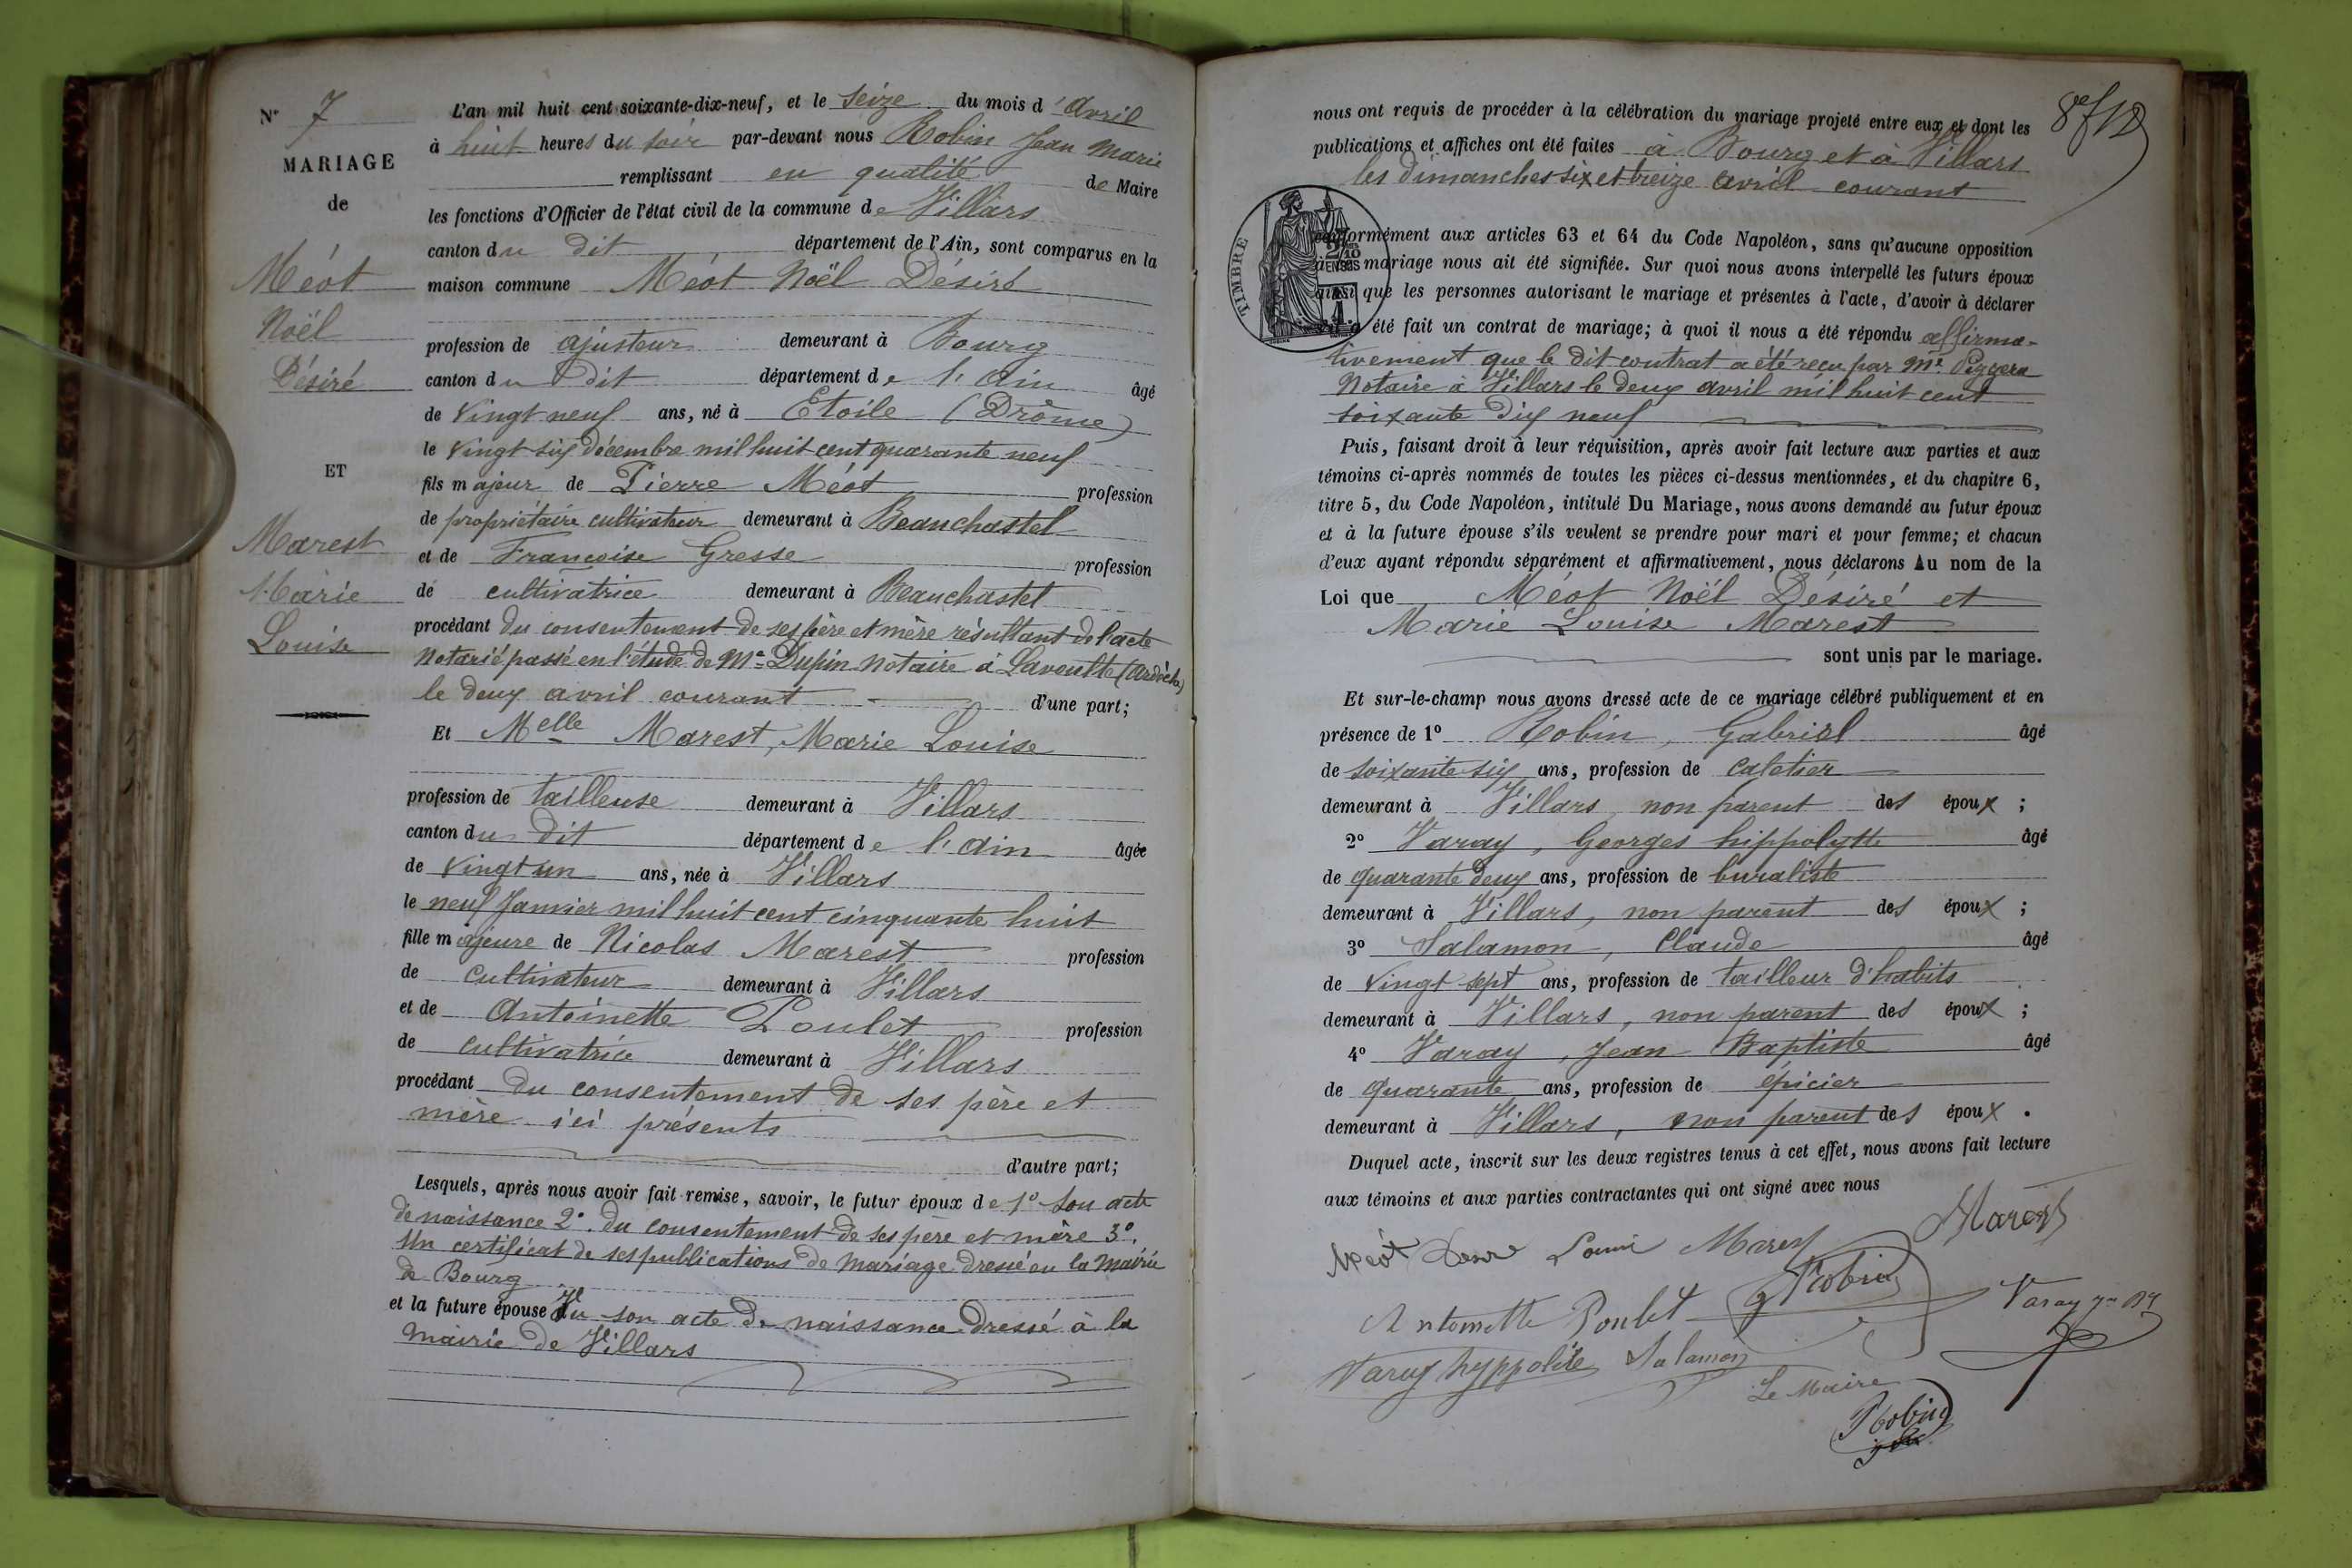 N° 7
MARIAGE
de
Méot
Noël
Désiré
ET
Marest
Marie
Louise
L'an mil huit cent soixante-dix-neuf, et le seize du mois d'avril
à huit heures du soir par-devant nous Robin Jean Marie
remplissant en qualité de Maire
les fonctions d'Officier de l'état civil de la commune de Villars
canton du dit département de l'Ain, sont comparus en la
maison commune Méot Noël Désiré
profession de ajusteur demeurant à Bourg
canton du dit département de l'ain âgé
de vingt neuf ans, né à Etoile (Drôme)
le vingt six décembre mil huit cent quarante neuf
fils majeur de Pierre Méot profession
de propriétaire cultivateur demeurant à Beauchastel
et de Françoise Gresse profession
de cultivatrice demeurant à Beauchastel
procédant du consentement de ses père et mère résultant de l'acte
Notarié passé en l'étude de Me Dupin Notaire à Lavoulte (Ardèche)
le deux avril courant d'une part;
Et Melle Marest, Marie Louise
profession de tailleuse demeurant à Villars
canton du dit département de l'ain âgée
de vingt un ans, née à Villars
le neuf Janvier mil huit cent cinquante huit
fille majeure de Nicolas Marest profession
de cultivateur demeurant à Villars
et de Antoinette Poulet profession
de cultivatrice demeurant à Villars
procédant du consentement de ses père et
mère ici présents
d'autre part;
Lesquels, après nous avoir fait remise, savoir, le futur époux de 1° son acte
de naissance 2° du consentement de ses père et mère 3°.
Un certificat de ses publications de mariage dressé en la Mairie
de Bourg
et la future épouse Vu son acte de naissance dressé à la
Mairie de Villars
nous ont requis de procéder à la célébration du mariage projeté entre eux et dont les
publications et affiches ont été faites à Bourg et à Villars
les dimanches six et treize avril courant
TIMBRE
conformément aux articles 63 et 64 du Code Napoléon, sans qu'aucune opposition
à ce mariage nous ait été signifiée. Sur quoi nous avons interpellé les futurs époux
ainsi que les personnes autorisant le mariage et présentes à l'acte, d'avoir à déclarer
s'il a été fait un contrat de mariage; à quoi il nous a été répondu affirma-
tivement que le dit contrat a été reçu par Me
Notaire à Villars le deux avril mil huit cent
soixante dix neuf
Puis, faisant droit à leur réquisition, après avoir fait lecture aux parties et aux
témoins ci-après nommés de toutes les pièces ci-dessus mentionnées, et du chapitre 6,
titre 5, du Code Napoléon, intitulé Du Mariage, nous avons demandé au futur époux
et à la future épouse s'ils veulent se prendre pour mari et pour femme; et chacun
d'eux ayant répondu séparément et affirmativement, nous déclarons Au nom de la
Loi que Méot Noël Désiré et
Marie Louise Marest
sont unis par le mariage.
Et sur-le-champ nous avons dressé acte de ce mariage célébré publiquement et en
présence de 1° Robin, Gabriel âgé
de soixante six ans, profession de cafetier
demeurant à Villars non parent des époux ;
2° Varay, Georges hippolytte âgé
de quarante deux ans, profession de buraliste
demeurant à Villars, non parent des époux ;
3° Salamon, Claude âgé
de vingt sept ans, profession de tailleur d'habits
demeurant à Villars, non parent des époux ;
4° Varay, Jean Baptiste âgé
de quarante ans, profession de épicier
demeurant à Villars, non parent des époux .
Duquel acte, inscrit sur les deux registres tenus à cet effet, nous avons fait lecture
aux témoins et aux parties contractantes qui ont signé avec nous
Marest
Méot Louise Marest
Antoinette Poulet Robin
Varay hyppolite Salamon
Le Maire
Robin